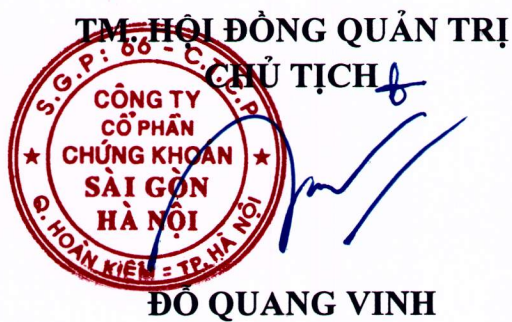 TM. HỘI ĐỒNG QUẢN TRỊ
CHỦ TỊCH
S.G.P: 66 - C.T.C.P
CÔNG TY
CỔ PHẦN
CHỨNG KHOÁN
SÀI GÒN
HÀ NỘI
Q. HOÀN KIẾM - TP. HÀ NỘI
ĐỖ QUANG VINH